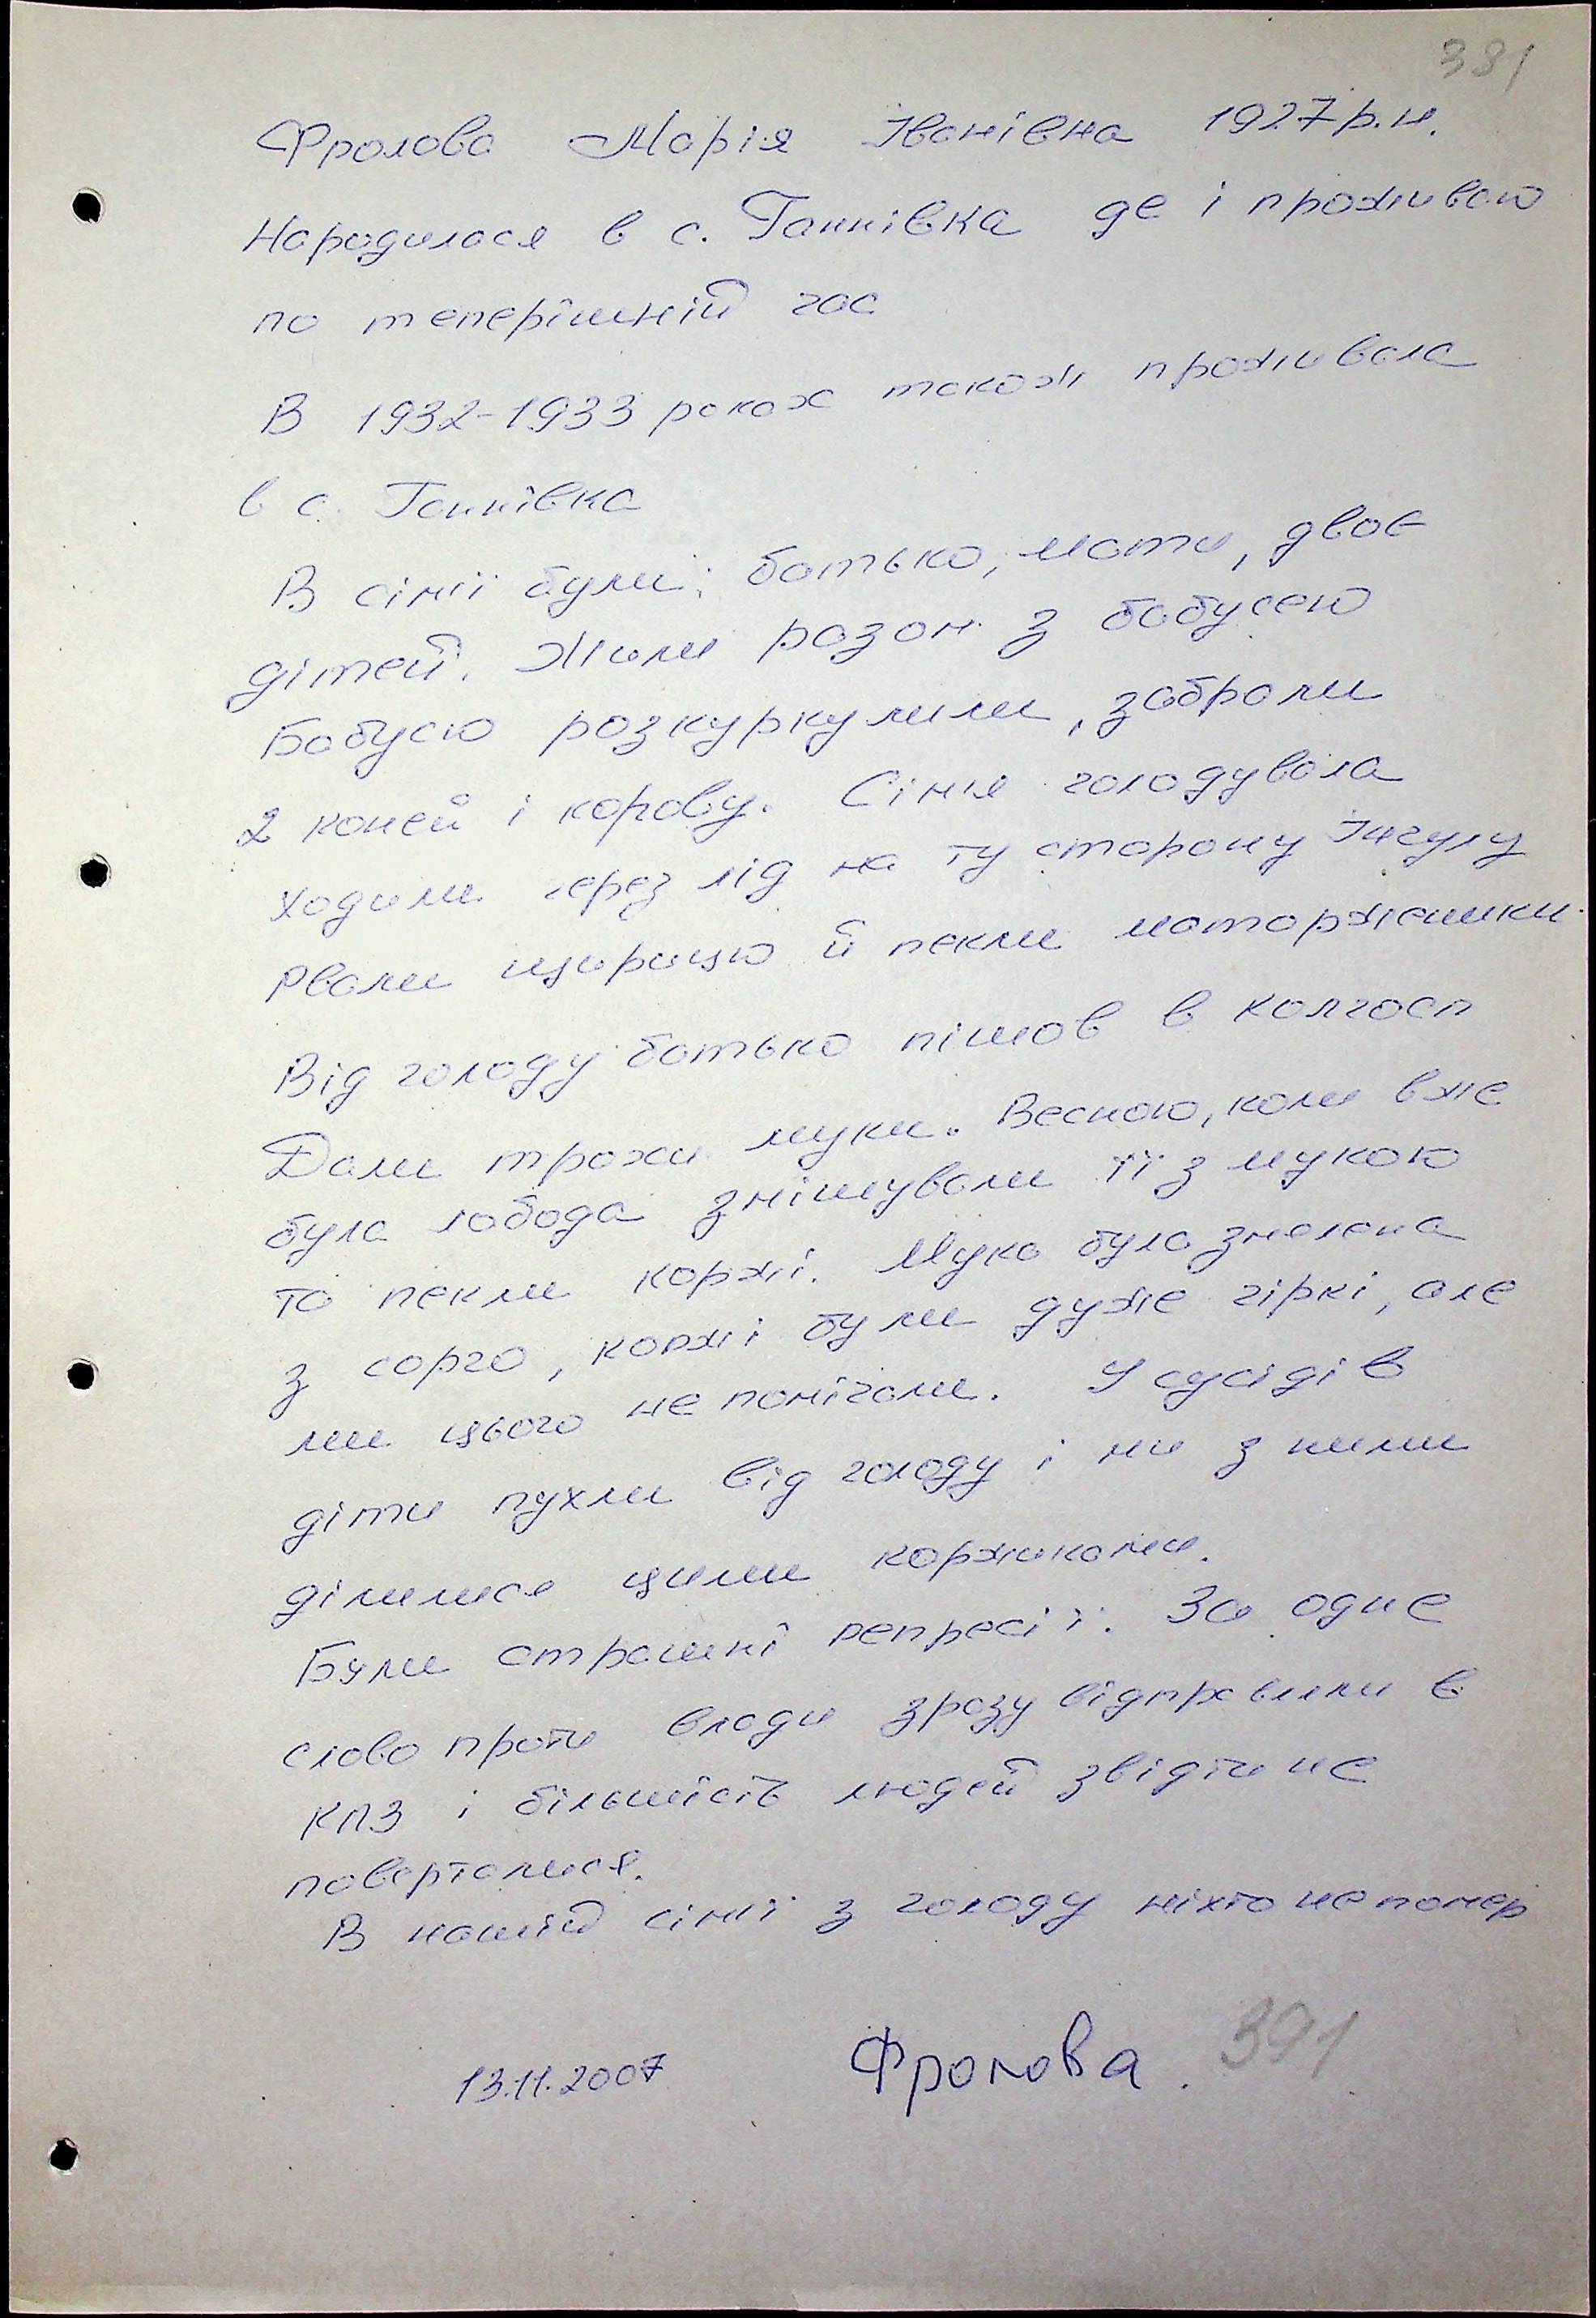 381
Фролова Марія Іванівна 1927 р.н.
Народилася в с. Ганнівка де і проживаю
по теперішній час
В 1932-1933 роках також проживала
в с. Ганнівка
В сімії були: батько, мати, двоє
дітей. Жили разом з бабусею
Бабусю розкуркулили, забрали
2 коней і корову. Сімя голодувала
ходили через лід на ту сторону Інгулу
рвали щирицю й пекли маторженики.
Від голоду батько пішов в колгосп
Дали трохи муки. Весною, коли вже
була лобода змішували її з мукою
та пекли коржі. Мука була змелена
з сорго, коржі були дуже гіркі, але
ми цього не помічали. У сусідів
діти пухли від голоду і ми з ними
ділилися цими коржиками.
Були страшні репресії. За одне
слово проти влади зразу відправляли в
КПЗ і більшість людей звідти не
поверталися.
В нашій сімії з голоду ніхто не помер
13.11.2007 Фролова. 391